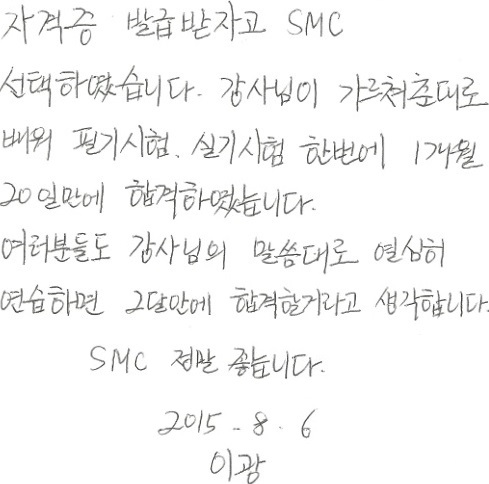 자격증 발급받자고 SMC
선택하였습니다. 강사님이 가르쳐춘대로
배워 필기시험, 실기시험 한번에 1개월
20일만에 합격하였습니다.
여러분들도 강사님의 말씀대로 열심히
연습하면 2달안에 합격할거라고 생각합니다.
SMC 정말 좋습니다.
2015 - 8 . 6
이광